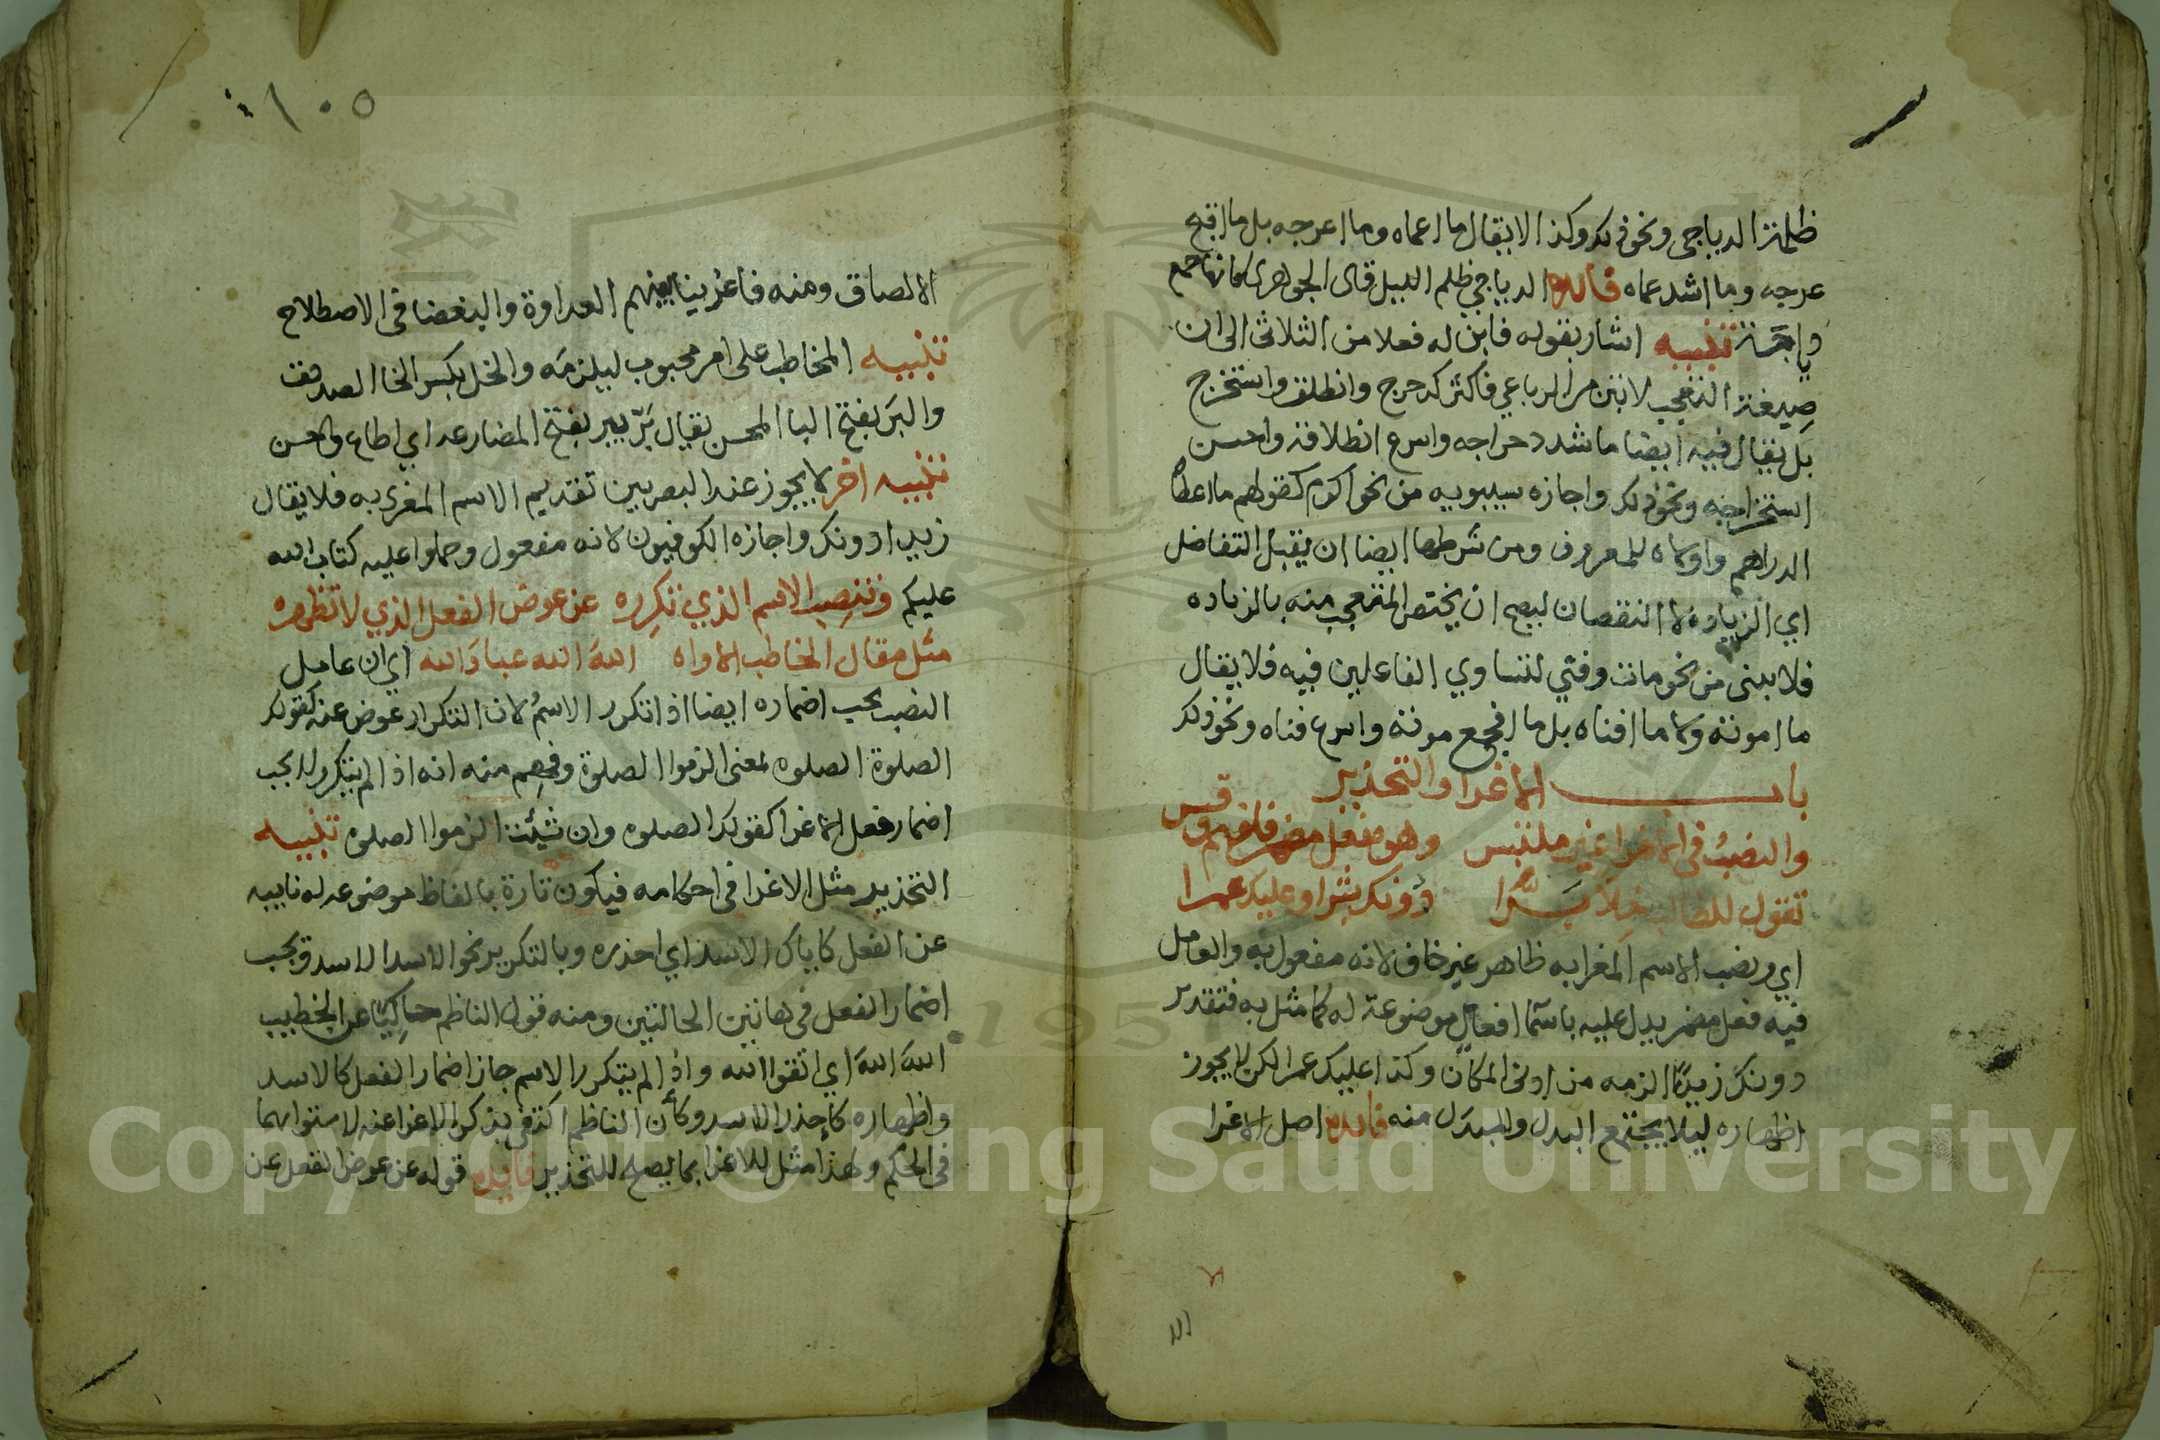 ظلمة الدياجي ونحو ذلك وكذا لا يقال ما اعماه وما اعرجه بل ما اقبح
عرجه وما اشد عماه فائدة الدياجي ظلم الليل قال الجوهري كانها جمع
تنبيه اشار بقوله فابن له فعلا من الثلاثي الى ان
صيغة التعجب لا تبنى من الرباعي فاكثر كدحرج وانطلق واستخرج
بل يقال فيه ايضا ما شد دحراجه واسرع انطلاقه واحسن
استخراجه ونحو ذلك واجازه سيبويه من نحو اكرم كقولهم ما اعطاه
الدراهم واولاه للمعروف ومن شرطها ايضا ان يقبل التفاضل
اي الزيادة لا النقصان ليصح ان يختص المتعجب منه بالزياده
فلا يبنى من نحو مات وفني لتساوي الفاعلين فيه فلا يقال
ما اموته ولا ما افناه بل ما افجع موته واسرع فناه ونحو ذلك
باب الاغرا والتحذير
والنصب في الاغرا غير ملتبس وهو بفعل مضمر فافهم وقس
تقول للطالب خلا برا دونك بشرا وعليك عمرا
اي ونصب الاسم المغرا به ظاهر غير خاف لانه مفعول به والعامل
فيه فعل مضمر يدل عليه باسما افعال موضوعة له كما مثل به فتقدير
دونك زيدا الزمه من ادنى المكان وكذا عليك عمرا لكن لا يجوز
اظهاره ليلا يجتمع البدل والمبدل منه فايدة اصل الاغرا
١٠٥
الالصاق ومنه فاغرينا بينهم العداوة والبغضا في الاصطلاح
تنبيه المخاطب على امر محبوب ليلزمه والخل بكسر الخا الصديق
والبر بفتح البا المحسن يقال بر يبر بفتح المضارعه اي اطاع واحسن
تنبيه اخر لا يجوز عند البصريين تقديم الاسم المغرى به فلا يقال
زيدا دونك واجازه الكوفيون لانه مفعول وحملوا عليه كتاب الله
عليكم وتنصب الاسم الذي تكرره عن عوض الفعل الذي لا تظهره
مثل مقال المخاطب الاواه الله الله عباد الله اي ان عامل
النصب يجب اضماره ايضا اذا تكرر الاسم لان التكرار عوض عنه كقولك
الصلوة الصلوه بمعنى الزموا الصلوة وفهم منه انه اذا لم يتكرر لا يجب
اضمار فعل الاغرا كقولك الصلوه وان شئت الزموا الصلوه تنبيه
التحذير مثل الاغرا في احكامه فيكون تارة بالفاظ موضوعه له نايبه
عن الفعل كاياك الاسد اي احذره وبالتكرير نحو الاسد الاسد ويجب
اضمار الفعل في هاتين الحالتين ومنه قول الناظم حاكيا عن الخطيب
الله الله اي اتقوا الله واذا لم يتكرر الاسم جاز اضمار الفعل كالاسد
واظهاره كاحذر الاسد وكأن الناظم اكتفى بذكر الاغرا عنه لاستوائهما
في الحكم ولهذا مثل للاغرا بما يصلح للتحذير فايدة قوله عن عوض الفعل عن
Copyright © King Saud University
1957